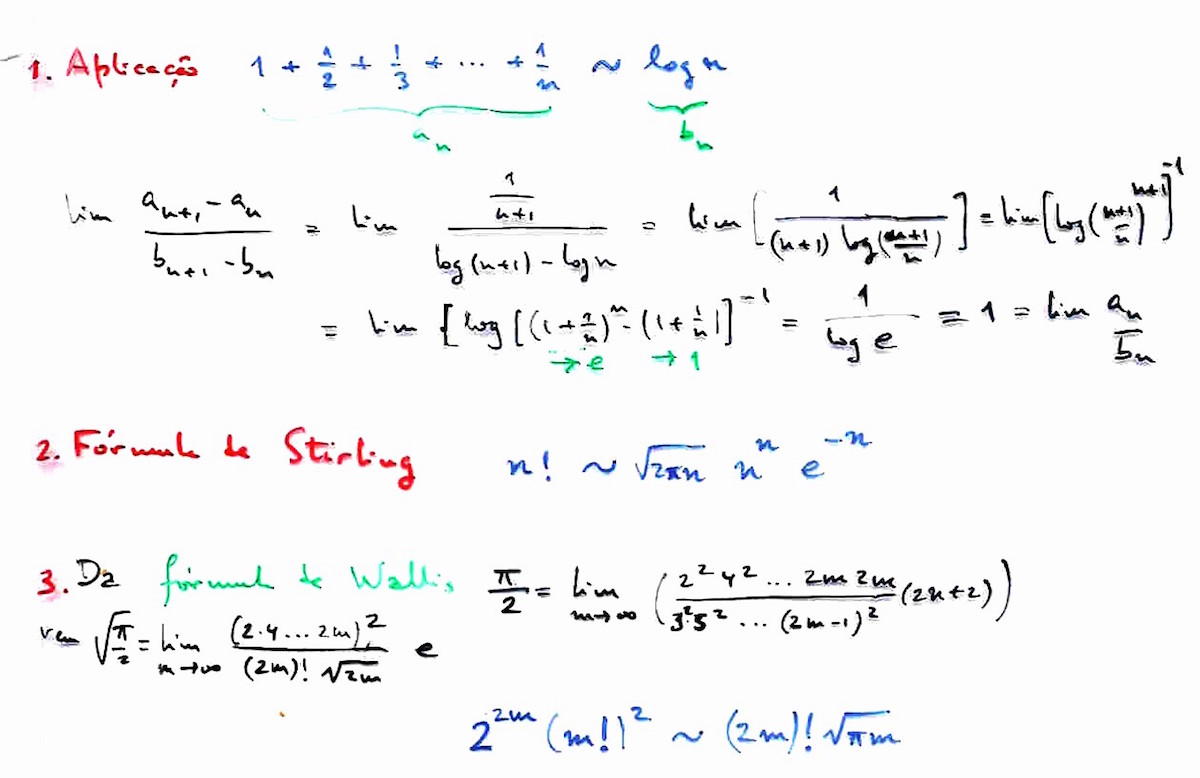 1. Aplicação 1 + 1/2 + 1/3 + ... + 1/n ~ log n
a_n b_n
lim (a_{n+1} - a_n)/(b_{n+1} - b_n) = lim (1/(n+1))/(log(n+1) - log n) = lim [1/((n+1) log((n+1)/n))] = lim [log((n+1)/n)^{n+1}]^{-1}
= lim [log [(1+1/n)^n · (1+1/n)]^{-1} = 1/(log e) = 1 = lim a_n/b_n
→ e → 1
2. Fórmula de Stirling n! ~ √(2πn) n^n e^{-n}
3. Da fórmula de Wallis, π/2 = lim_{m→∞} (2^2 4^2 ... 2m 2m/(3^2 5^2 ... (2m-1)^2) (2n+2))
vem √(π/2) = lim_{m→∞} (2·4...2m)^2/((2m)! √(2m)) e
2^{2m} (m!)^2 ~ (2m)! √(πm)